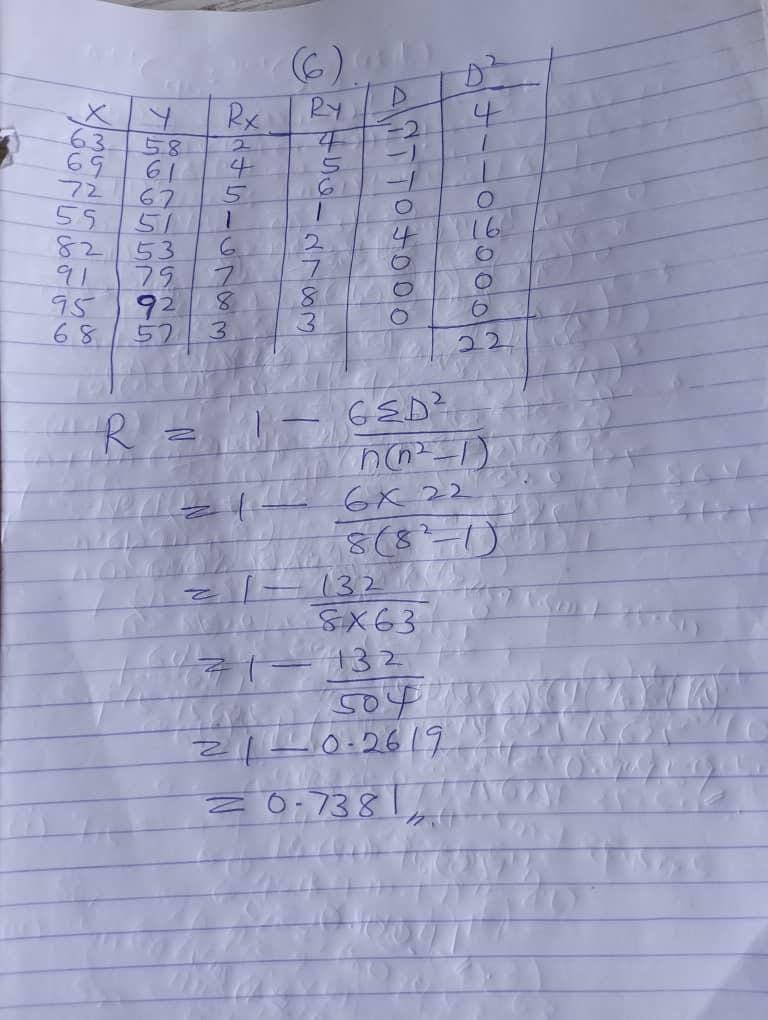 (6).
X Y Rx Ry D D²
63 58 2 4 -2 4
69 61 4 5 -1 1
72 67 5 6 -1 1
55 51 1 1 0 0
82 53 6 2 4 16
91 79 7 7 0 0
95 92 8 8 0 0
68 57 3 3 0 0
22
R = 1 - 6ΣD² / n(n²-1)
= 1 - 6 × 22 / 8(8²-1)
= 1 - 132 / 8×63
= 1 - 132 / 504
= 1 - 0.2619
= 0.7381